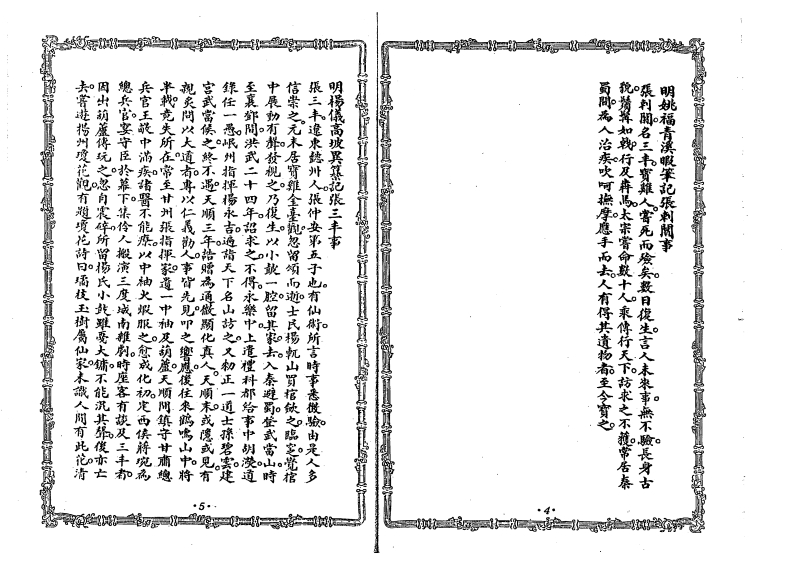 明姚福青溪暇筆記張剌闒事
張剌闒名三丰寶雞人嘗死而殮矣數日復生言人未來事無不驗長身古
貌鬚髯如戟行及犇馬太宗嘗命數十人乘傳行天下訪求之不獲常居秦
蜀間為人治疾吹呵撫摩應手而去人有得其遺物者至今寶之
·4·
明楊儀高坡異纂記張三丰事
張三丰遼東懿州人張仲安第五子也有仙術所言時事悉徵驗由是人多
信崇之元末居寶雞金臺觀忽留頌而逝士民楊軌山買棺斂之臨窆覺棺
中展動有聲發視之乃復生以小鈸一腔留其家去入秦避蜀登武當山時
至襄鄧間洪武二十四年詔求之不得永樂中上遣禮科都給事中胡濙道
錄任一愚岷州指揮楊永吉遍詣天下名山訪之又勅正一道士孫碧雲建
宮武當俟之終不遇天順三年誥贈為通微顯化真人天順末或隱或見有
親炙問以大道者專以仁義勸人事皆先見叩之響應後往來鶴鳴山中將
半載竟失所在常至甘州張指揮家遺一中袖及葫蘆天順間鎮守甘肅總
兵官王敬中滿疾諸醫不能療以中袖火煅服之愈成化初定西侯蔣琬為
總兵官宴守臣於幕下集伶人搬演三度城南雜劇時座客有談及三丰者
因出葫蘆傳玩之忽自震碎所留楊氏小鈸雖憂大鏞不能汎其聲後亦亡
去嘗遊揚州瓊花觀有題瓊花詩曰璚枝玉樹屬仙家未識人間有此花清
·5·